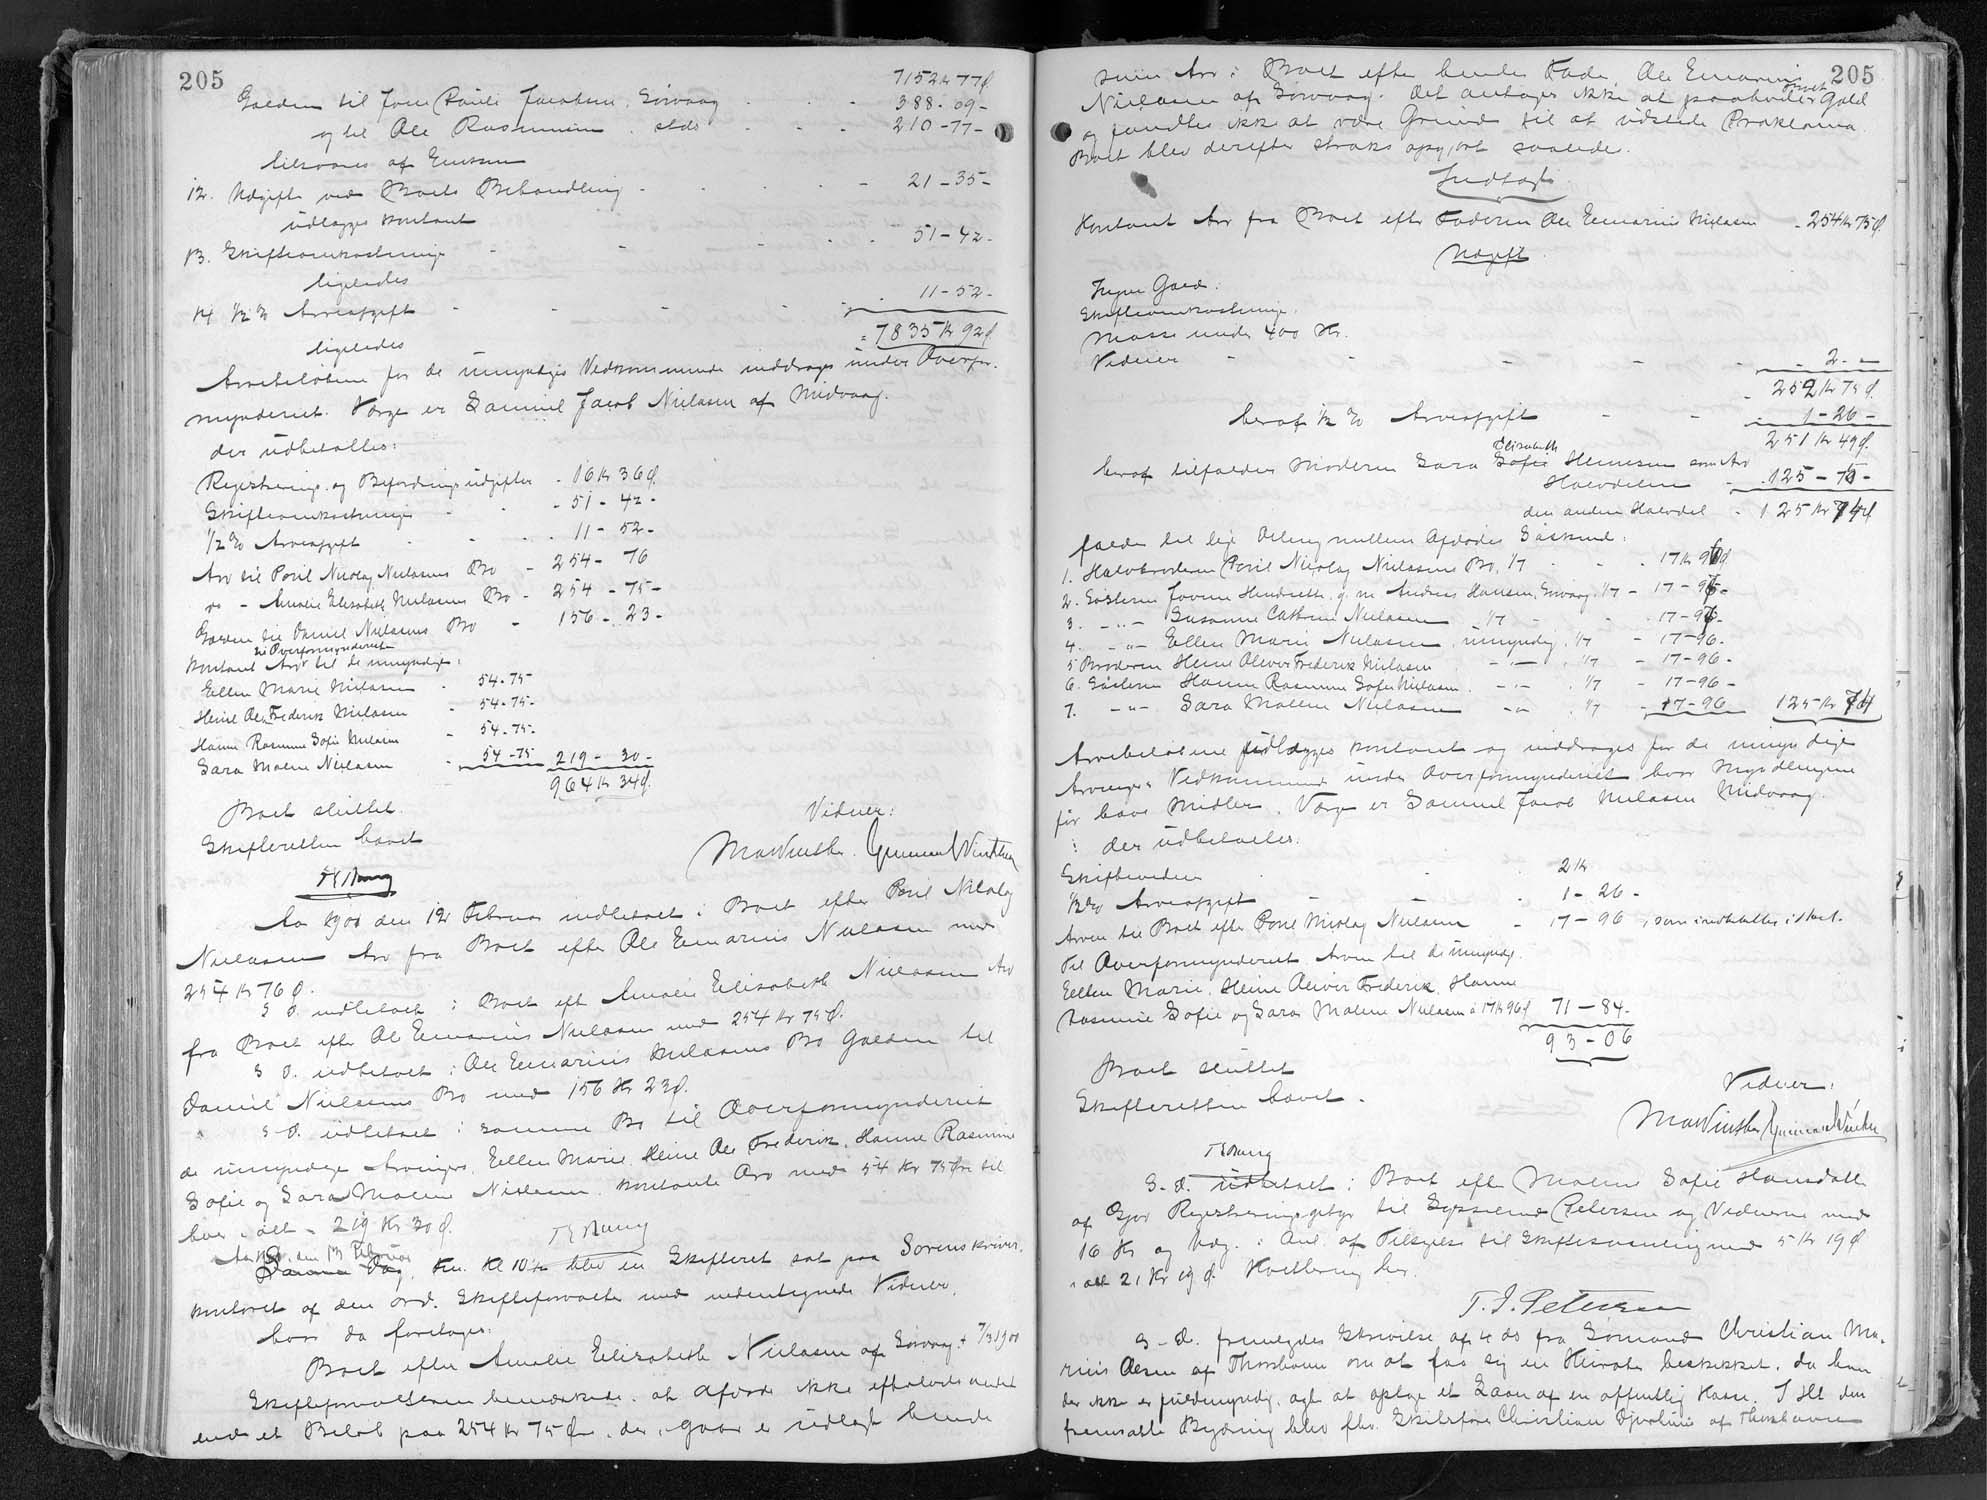 205
7152 Kr 77 Ø
Gælden til Jens Pauli Jacobsen, Sørvaag - - - 388 - 09 -
og til Ole Rasmussen stds - - - 210 - 77 -
tilsvares af Enken
12. Udgifter ved Boets Behandling - - - 21 - 35 -
udlægges kontant
13. Skifteomkostninger - - - 51 - 42 -
ligeledes
14 ½ % Arveafgift - - - 11 - 52 -
ligeledes
= 7835 Kr 92 Ø
Arvebeløbene for de umyndiges Vedkommende inddrages under Overfor-
mynderiet. Værge er Samuel Jacob Nielasen af Midvaag.
der udbetaltes:
Registrerings og Befordringsudgifter - 16 Kr 36 Ø
Skifteomkostninger - - - 51 - 42 -
½ % Arveafgift - - - 11 - 52 -
Arv til Poul Nicolaj Nielasens Bo - 254 - 76
do - Amalie Elisabeth Nielasens Bo - 254 - 75 -
Gælden til Daniel Nielsens Bo - 156 - 23 -
til Overformynderiet
Kontant Arv til de umyndige:
Ellen Marie Nielasen - 54 - 75 -
Heine Ole Frederik Nielasen - 54 - 75 -
Hanne Rasmine Sofie Nielasen - 54 - 75 -
Sara Malene Nielasen - 54 - 75 219 - 30 -
964 Kr 34 Ø
Boet sluttet.
Skifteretten hævet
Vidner:
MaWinther. Gunnar Winther
Aar 1901 den 12 Februar indbetalt i Boet efter Poul Nicolaj
Nielasen Arv fra Boet efter Ole Enmarius Nielasen med
254 Kr 76 Ø.
S. D. indbetalt i Boet eft Amalie Elisabeth Nielasen Arv
fra Boet efter Ole Enmarius Nielasen med 254 Kr 75 Ø.
S. D. udbetalt i Ole Enmarius Nielasens Bo Gælden til
Daniel Nielsens Bo med 156 Kr 23 Ø.
S. D. udbetalt i samme Bo til Overformynderiet
de umyndige Arvinger, Ellen Marie, Heine Ole Frederik, Hanne Rasmine
Sofie og Sara Malene Nielasen, kontante Arv med 54 Kr 75 Øre til
hver, ialt - 219 Kr 30 Ø.
Aar 1901, den 13 Februar
Samme Dag, Fm. Kl 10 ½ blev en Skifteret sat paa Sorenskriver-
kontoret af den ord. Skifteforvalter med undertegnede Vidner,
hvor da foretoges:
Boet efter Amalie Elisabeth Nielasen af Sørvaag + 7/3 1900
Skifteforvalteren bemærkede, at Afdøde ikke efterlod andet
end et Beløb paa 254 Kr 75 Øre, der, i gaar er udlagt hende
205
som Arv i Boet efter hendes Fader, Ole Enmarius
Nielasen af Sørvaag. Det antages ikke at paahvile Boet Gæld
og fandtes ikke at være Grund til at udstede Proklama.
Boet blev derefter straks opgjort saalede.
Indtægt
Kontant Arv fra Boet efter Faderen Ole Enmarius Nielasen - 254 Kr 75 Ø.
Udgift
Ingen Gæld.
Skifteomkostninger.
Masse under 400 Kr.
Vidner - - - 2 - -
252 Kr 75 Ø.
heraf ½ % Arveafgift - - 1 - 26 -
251 Kr 49 Ø.
Elisabeth
heraf tilfalder Moderen Sara Sofie Heinesen som Arv
Halvdelen - 125 - 75 -
den anden Halvdel - 125 Kr 74 Ø
falder til lige Deling mellem Afdødes Søskend:
1. Halvbroderen Poul Nicolaj Nielasens Bo, 1/7 - - 17 Kr 96 Ø
2. Søsteren Jovine Henriette, g. m. Andreas Hansen, Sørvaag, 1/7 - 17 - 96 -
3. - " - Susanne Cathrine Nielasen 1/7 - 17 - 96 -
4. - " - Ellen Marie Nielasen, umyndig, 1/7 - 17 - 96 -
5 Broderen Heine Oliver Frederik Nielasen - " - , 1/7 - 17 - 96 -
6. Søsteren Hanne Rasmine Sofie Nielasen, - " - , 1/7 - 17 - 96 -
7. - " - Sara Malene Nielasen - " - 1/7 - 17 - 96 125 Kr 74
Arvebeløbene udlægges kontant og inddrages for de umyndige
Arvingers Vedkommende under Overformynderiet hvor Myndlingene
før have Midler. Værge er Samuel Jacob Nielasen Midvaag.
der udbetales:
Skiftevidner - - 2 Kr
½ % Arveafgift - - 1 - 26 -
Arven til Boet efter Poul Nicolaj Nielasen - 17 - 96 , som indbetaltes i Boet.
Til Overformynderiet Arven til de umyndige
Ellen Marie, Heine Oliver Frederik, Hanne
Rasmine Sofie og Sara Malene Nielasen à 17 Kr 96 Ø 71 - 84 -
93 - 06
Boet sluttet
Skifteretten hævet.
Vidner:
MaWinther Gunnar Winther
S. D. udbetalt i Boet eft Malene Sofie Hansdatter
af Registreringsgebyr til Sysselmd Petersen og Vidnerne med
16 Kr og Udg. i Anl. af Tilsigelse til Skiftesamling med 5 Kr 19 Ø
i alt 21 Kr 19 Ø. Kvittering her.
T. J. Petersen
S. D. fremlagdes Skrivelse af 4 ds fra Sømand Christian Ma-
rius Olsen af Thorshavn om at faa sig en Kurator beskikket, da han
der ikke er fuldmyndig, agt at optage et Laan af en offentlig Kasse. I Hht den
fremsatte Begæring blev fhv. Christian Djurhuus af Thorshavn